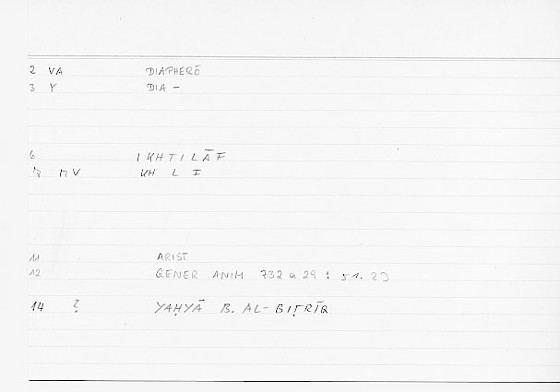 2 VA DIAPHERŌ
3 Y DIA -
6 IKHTILĀF
MV KH L I
11 ARIST
12 GENER ANIM 732 a 29 : 51. 23
14 ? YAḤYĀ B. AL-BIṬRĪQ